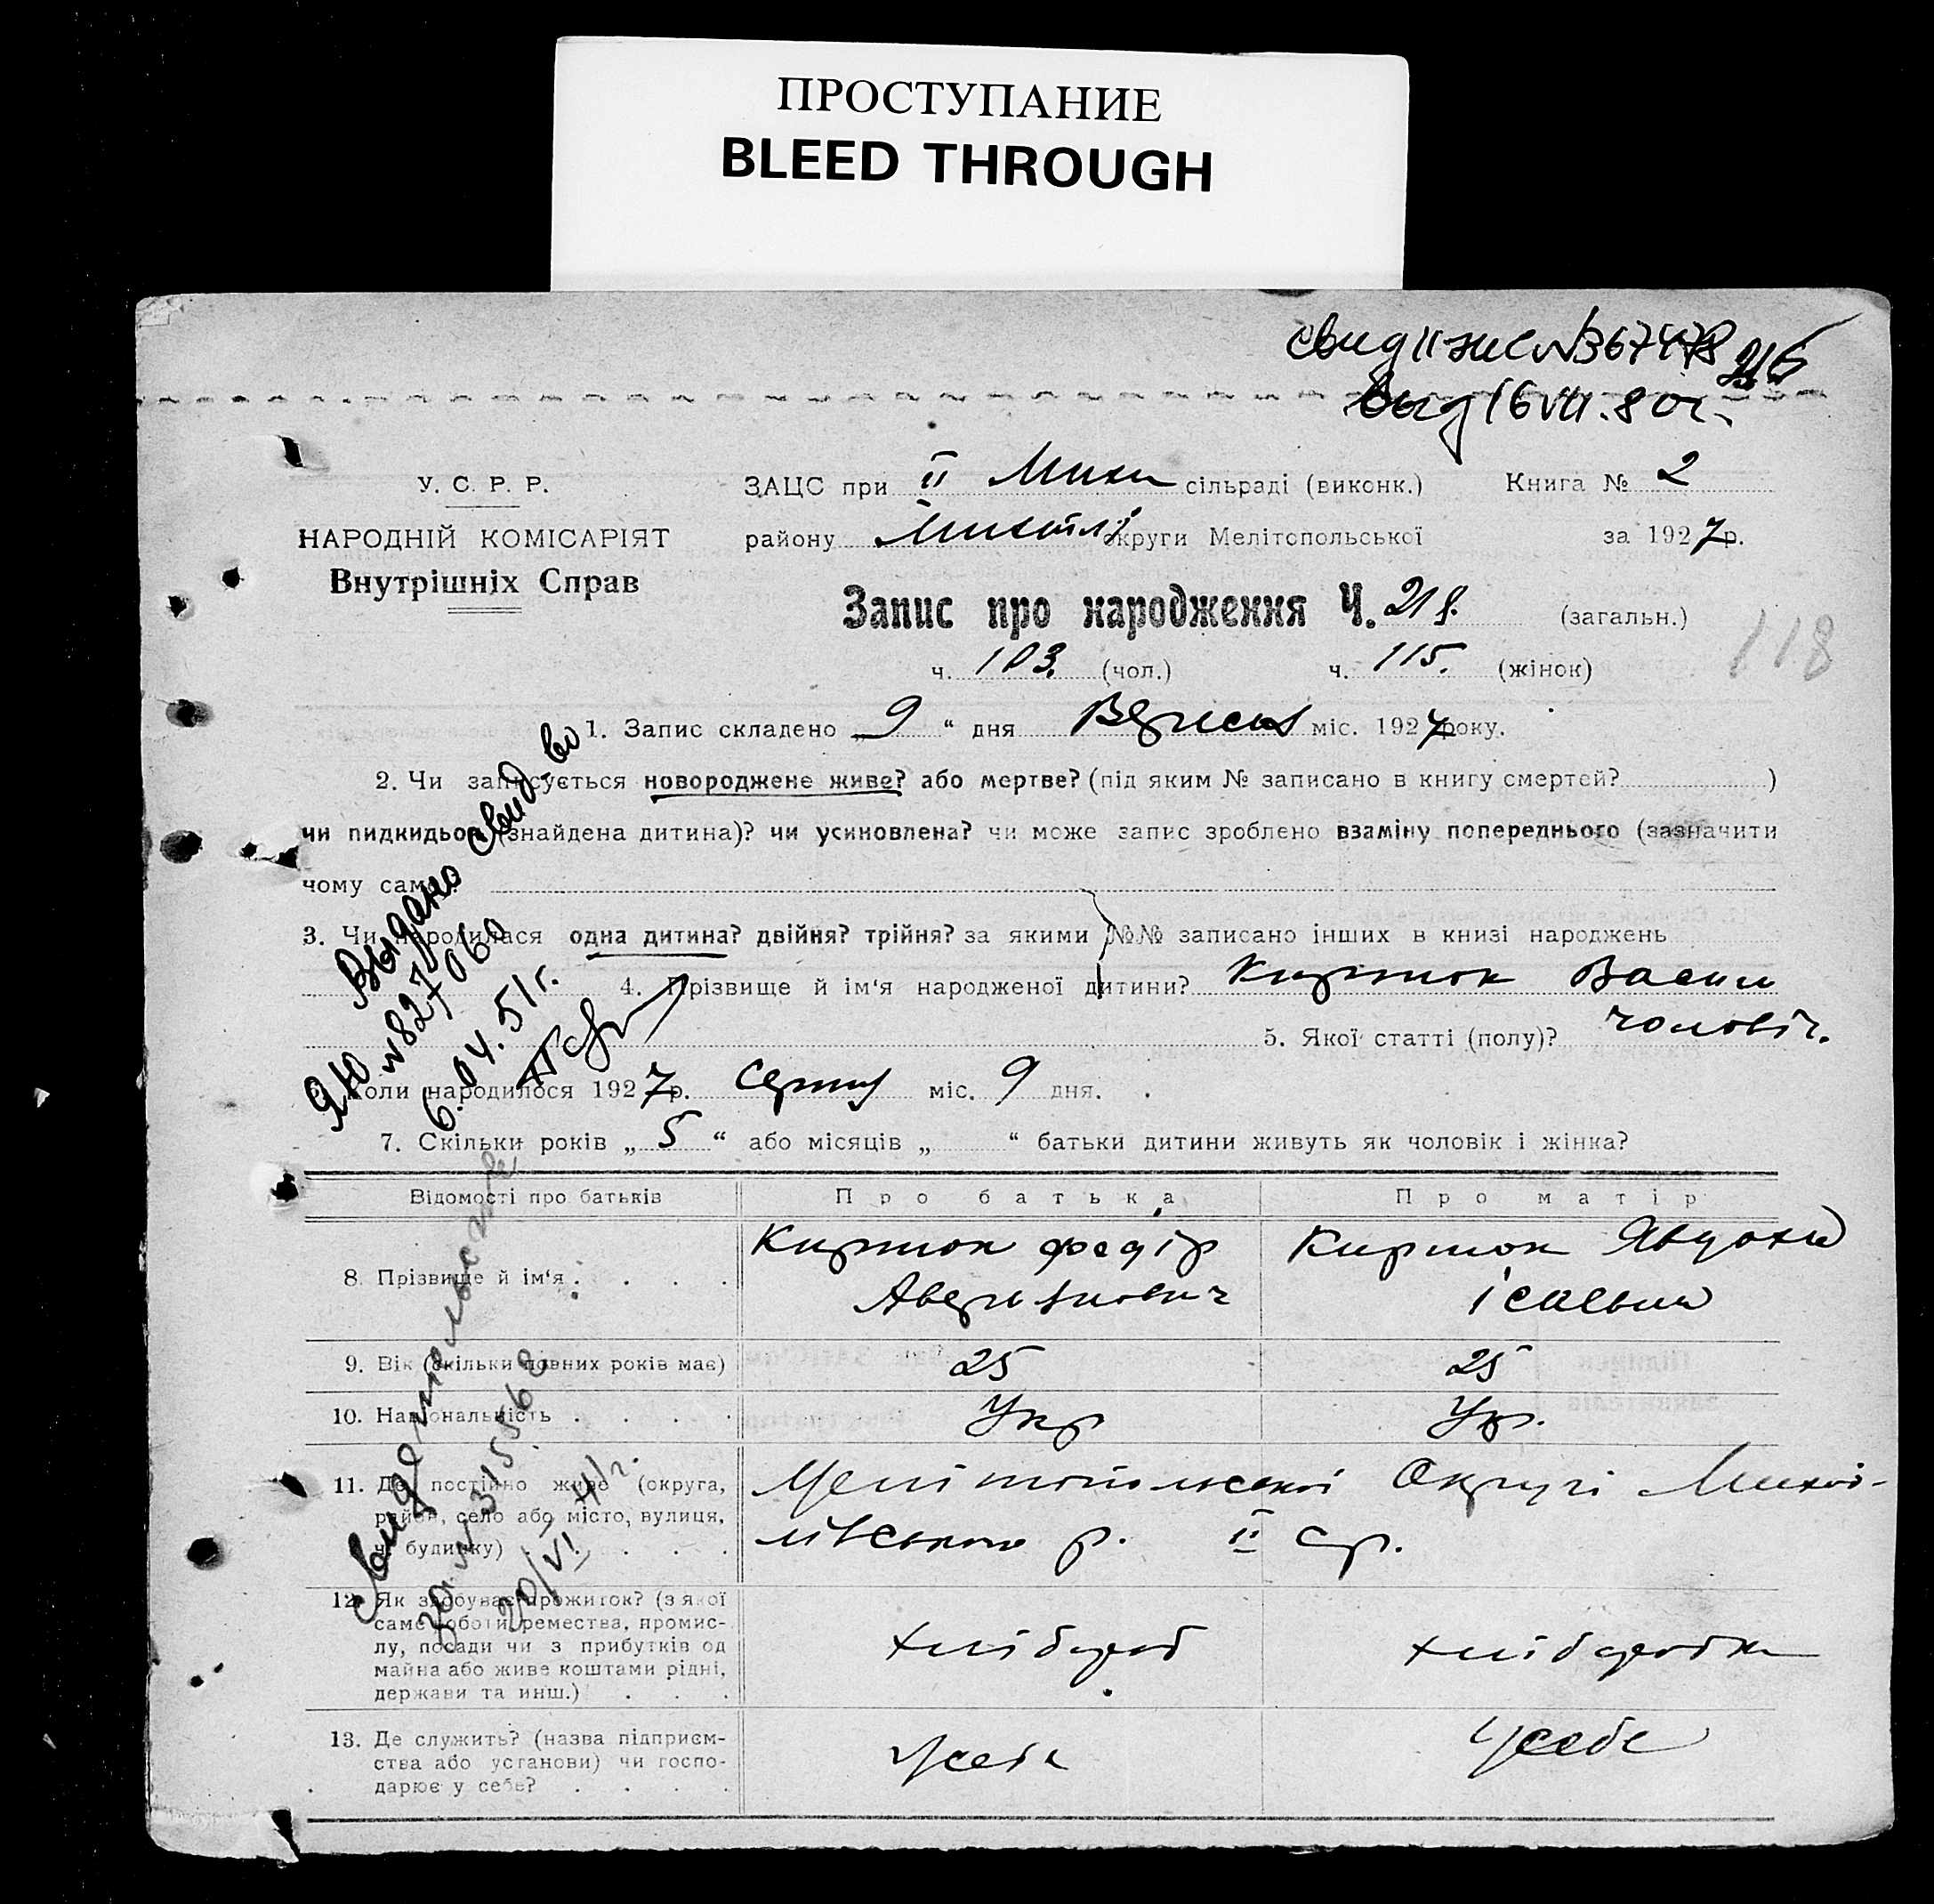 ПРОСТУПАНИЕ
BLEED THROUGH
вид 16 VII. 80 г.
У. С. Р. Р.
НАРОДНІЙ КОМІСАРІЯТ
Внутрішніх Справ
ЗАЦС при II Миха сільраді (виконк.) Книга № 2
району Михайлі округи Мелітопольської за 1927 р.
Запис про народження Ч. 218. (загальн.)
118
ч. 103. (чол.) ч. 115. (жінок)
1. Запис складено „ 9 “ дня Вересня міс. 1927 року.
2. Чи записується новороджене живе? або мертве? (під яким № записано в книгу смертей? )
чи пидкидьок (знайдена дитина)? чи усиновлена? чи може запис зроблено взаміну попереднього (зазначити
чому саме?
3. Чи народилася одна дитина? двійня? трійня? за якими №№ записано інших в книзі народжень
4. Прізвище й ім‘я народженої дитини? Киршок Васил
5. Якої статті (полу)? чоловіч.
6. Коли народилося 1927 р. Серпня міс. 9 дня.
7. Скільки років „ 5 “ або місяців „ “ батьки дитини живуть як чоловік і жінка?
Видано свид-во
ЯЮ №827060
6. 04. 51 г.
Відомості про батьків Про батька Про матір
8. Прізвище й ім‘я Киршок Федір Киршок Явдоха
9. Вік (скільки повних років має) 25 25
10. Національність Укр Укр.
11. Де постійно живе (округа, район, село або місто, вулиця, ч. будинку) Мелітопольської Округі Михай-
лівського р. II ср.
12. Як здобуває прожиток? (з якої
саме роботи, ремества, промис-
лу, посади чи з прибутків од
майна або живе коштами рідні,
держави та инш.) хлібороб хліборобка
13. Де служить? (назва підприєм-
ства або установи) чи госпо-
дарює у себе? У себе У себе
20/VI 41 г.